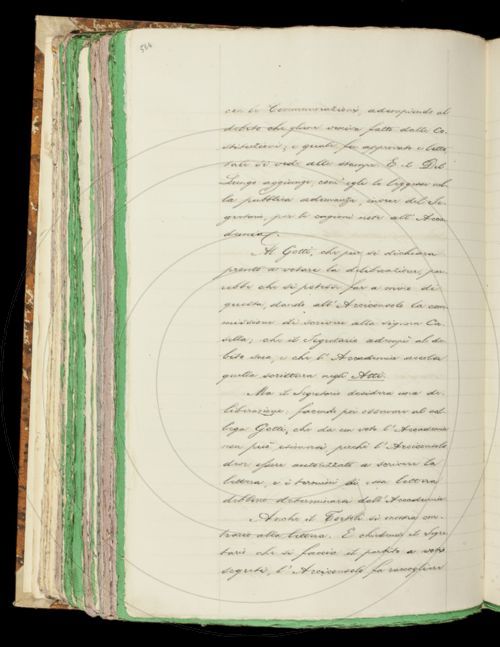 564
con le Communicazioni, adempiendo al
debito che gliene veniva fatto dalle Co-
stituzioni; e quale fu approvato e
si vede alle stampe. E il Del
Lungo aggiunge, com'egli lo leggesse nel-
la pubblica adunanza, invece del Se-
gretario, per le cagioni note all'Acca-
demia.
Al Gotti, che pur si dichiara
pronto a votare la deliberazione, pa-
rebbe che si potesse far a meno di
questa, dando all'Arciconsolo la com-
missione di scrivere alla signora Ca-
sella; che il Segretario adempì al de-
bito suo, e che l'Accademia accolse
quella scrittura negli Atti.
Ma il Segretario desidera una de-
liberazione, facendo poi osservare al col-
lega Gotti, che da un voto l'Accademia
non può esimersi, perchè l'Arciconsolo
deve essere autorizzato a scrivere la
lettera, e i termini di essa lettera
debbono determinarsi dall'Accademia.
Anche il Tortoli si mostra con-
trario alla lettera. E chiedendo il Segre-
tario che si faccia il partito a voto
segreto, l'Arciconsolo fa raccogliere